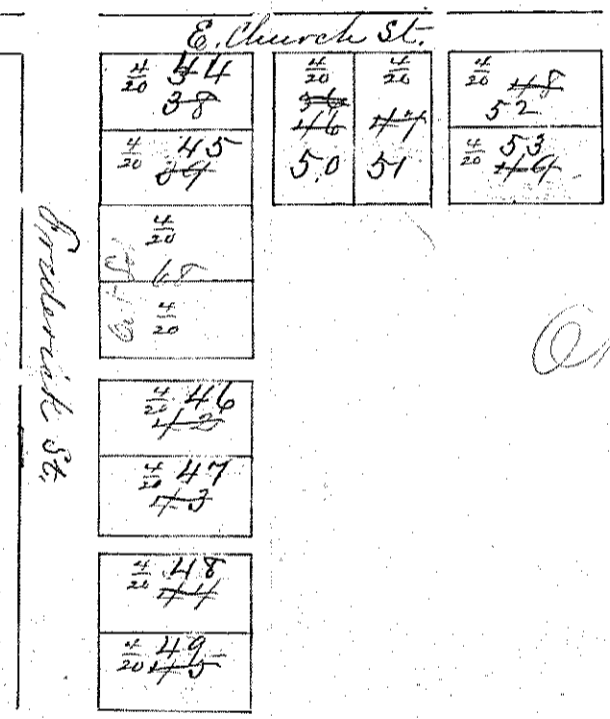 E. Church St.
4/20 44
38
4/20 45
39
4/20
68
4/20
4/20 46
42
4/20 47
43
4/20 48
44
4/20 49
45
4/20
36
46
50
4/20
47
51
4/20 48
52
4/20 53
49
Frederick St.